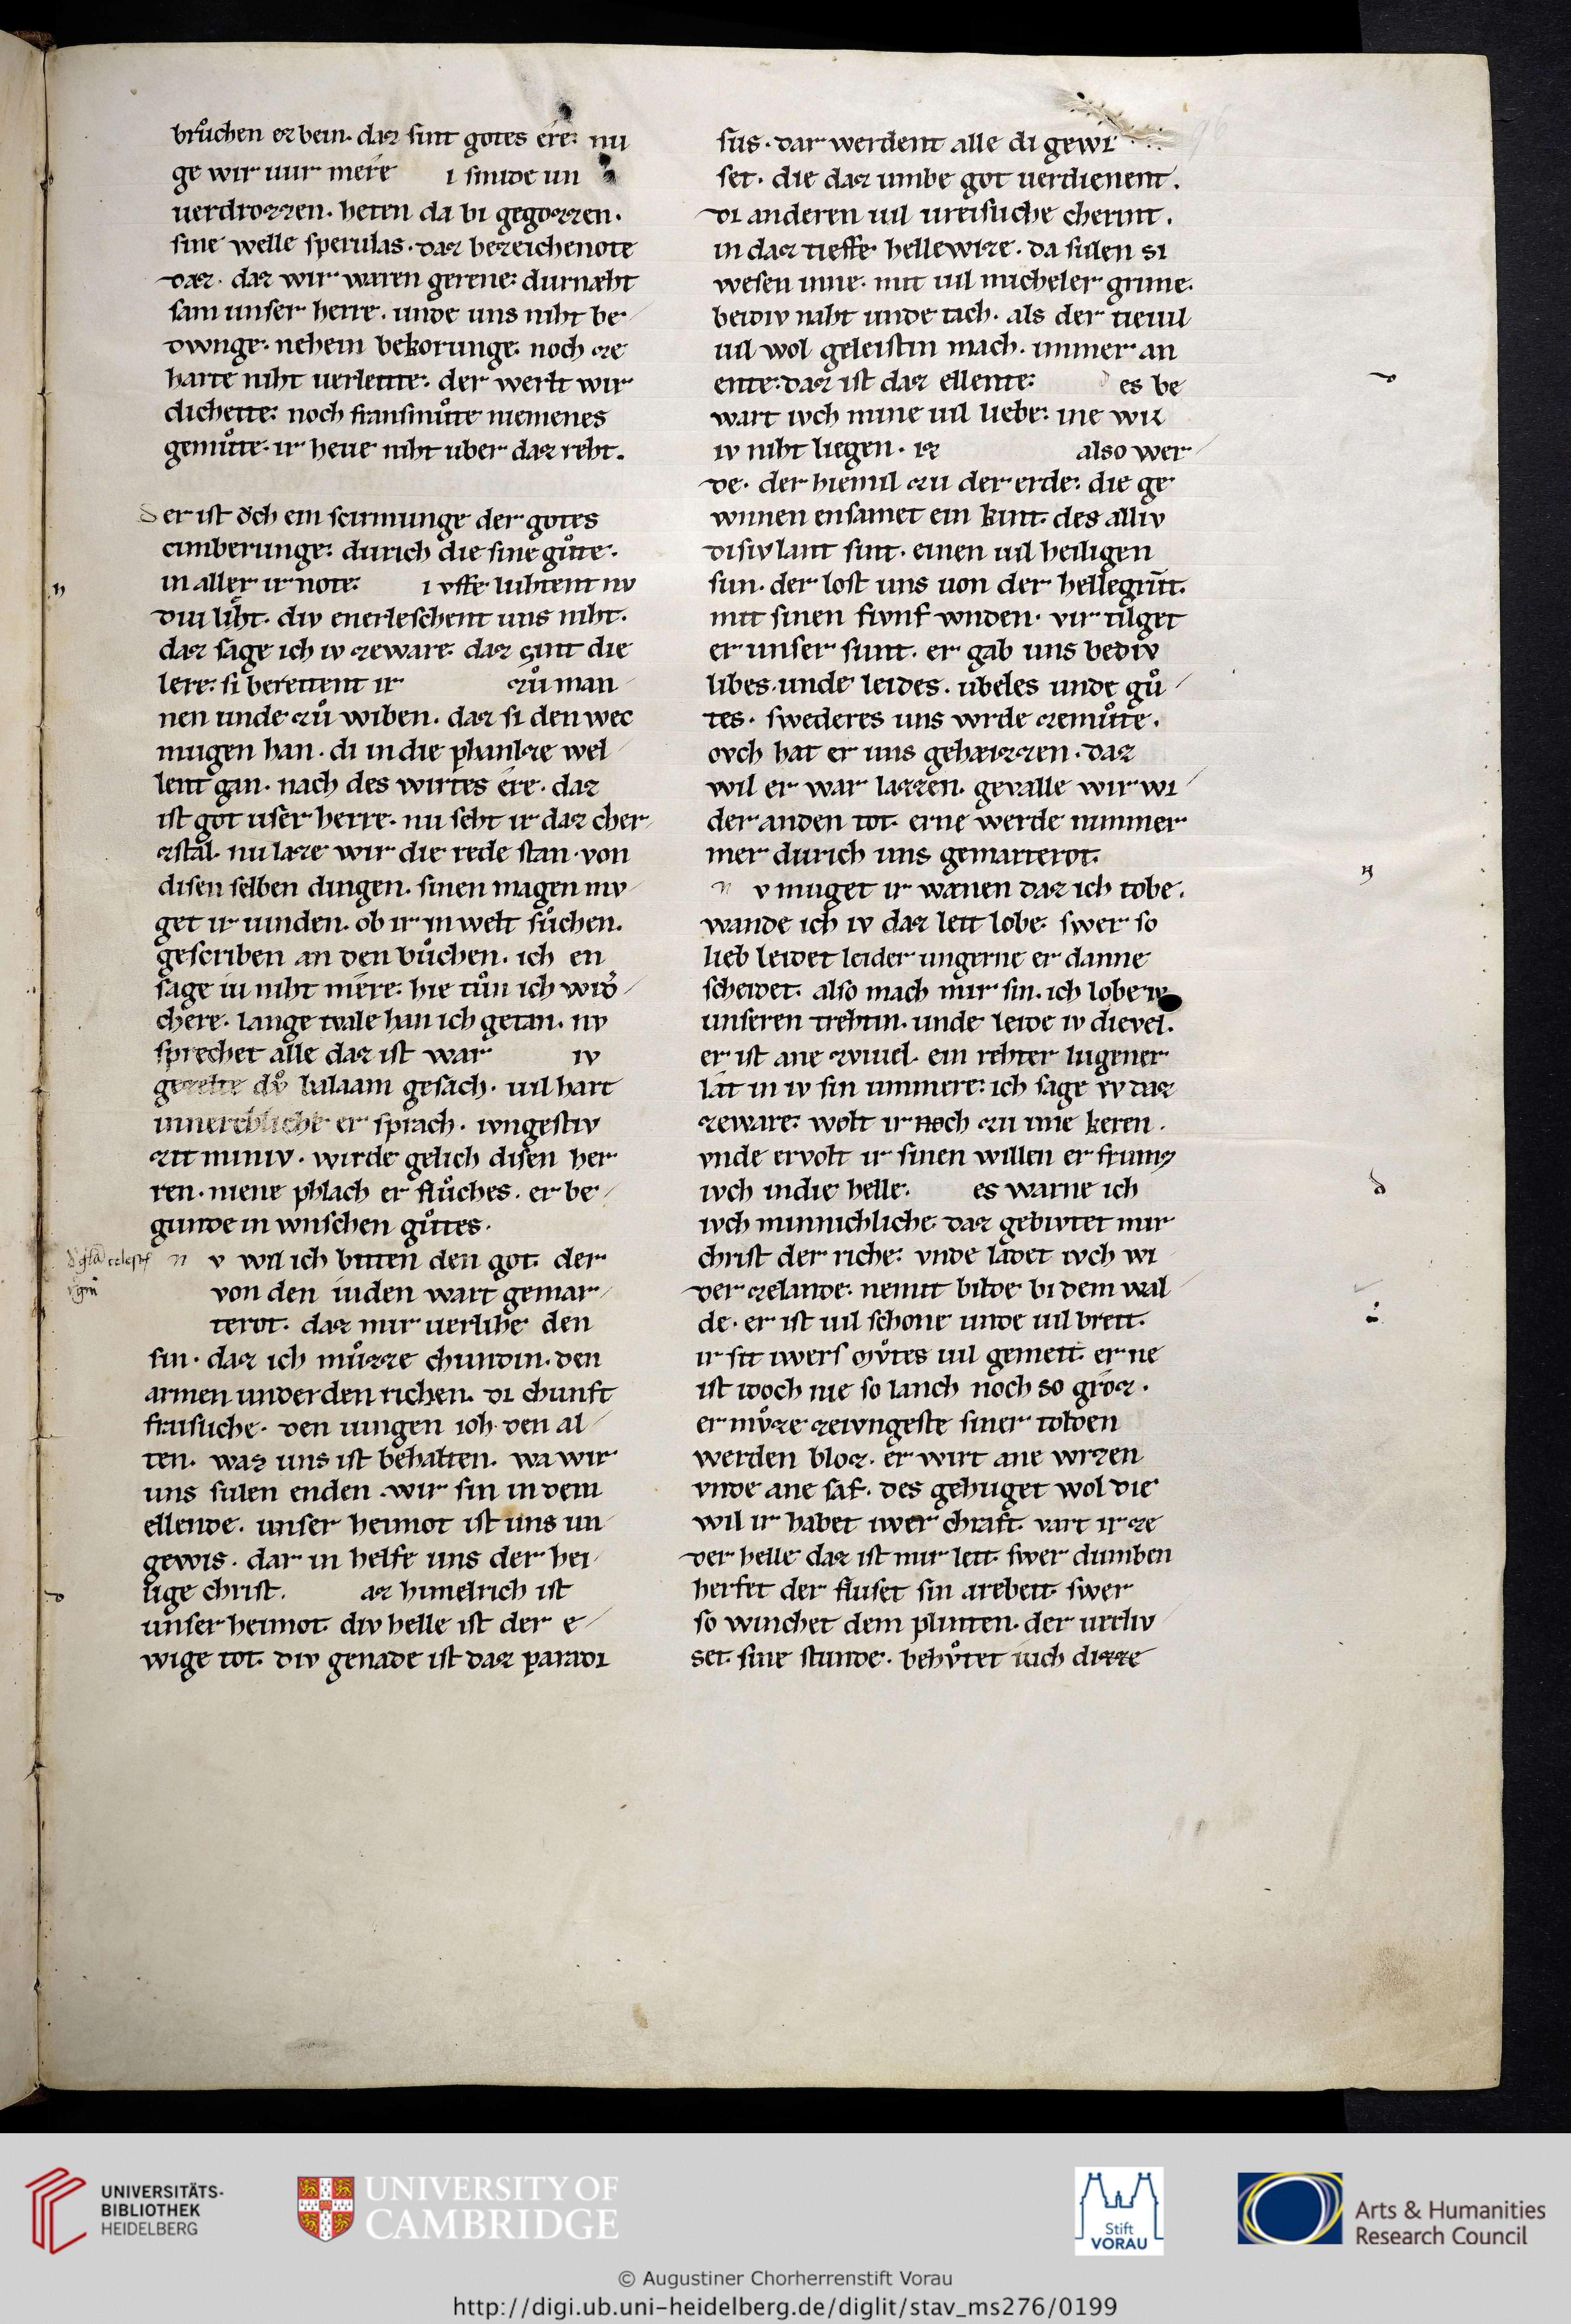 brůchen ez bein. daz sint gotes ere: nu
ge wir uur mere      i smide un
uerdrozzen. heten da bi gegozzen.
sine welle sperulas. daz bezeichenote
daz. daz wir waren gerene: durnæht
sam unser herre. unde uns niht be
dwnge. nehein bekorunge. noch ze
harte niht uerleitte. der werlt wir
dichette: noch transmůte niemenes
gemůte. ir heue niht uber daz reht.
der ist ǒch ein scirmunge der gotes
cimberunge: durich die sine gůte.
in aller ir note:      i uffe luhtent nv
diu liht. div enerleschent uns niht.
daz sage ich iv zeware. daz sint die
lere: si bereitent ir      zů man
nen unde zů wiben. daz si den wec
mugen han. di in die phanlze wel
lent gan. nach des wirtes ere. daz
ist got unser herre. nu seht ir daz cher
zstal. nu laze wir die rede stan. von
disen selben dingen. sinen magen mv
get ir uinden. ob ir in welt sůchen.
gescriben an den bůchen. ich en
sage iu niht mere: hie tůn ich wid
chere. lange tvale han ich getan. nv
sprechet alle daz ist war      iv
gezelte dů balaam gesach. uil hart
innerchliche er sprach. iungestiv
zit miniv. wirde gelich disen her
ren. niene phlach er flůches. er be
gunde in wnschen gůtes.
n v wil ich bitten den got. der
von den iuden wart gemar
terot. daz mir uerlihe den
sin. daz ich můzze chundin. den
armen under den richen. di chunft
fraisliche. den iungen ioh den al
ten. waz uns ist behalten. wa wir
uns sulen enden. wir sin in dem
ellende. unser heimot ist uns un
gewis. dar in helfe uns der hei
lige christ.      az himelrich ist
unser heimot. div helle ist der e
wige tot. div genade ist daz paradi
sus. dar werdent alle di gewi
set. die daz umbe got uerdienent.
di anderen uil ureisliche cherint.
in daz tieffe hellewize. da sulen si
wesen inne. mit uil micheler grime.
beidiv naht unde tach. als der tieuil
uil wol geleistin mach. immer an
ente: daz ist daz ellente:      d es be
wart ivch mine uil liebe: ine wil
iv niht liegen. iz      also wer
de. der hiemil zu der erde: die ge
wnnen ensamet ein kint. des alliv
disiv lant sint. einen uil heiligen
sun. der lost uns uon der hellegrůt.
mit sinen fivnf wnden. vir tilget
er unser sunt. er gab uns bediv
libes. unde leides. ubeles unde gů
tes. swederes uns wrde zemůte.
ovch hat er uns geheizzen. daz
wil er war lazzen. geualle wir wi
der an den tot. erne werde nimmer
mer durich uns gemarterot.
n v muget ir wænen daz ich tobe.
wande ich iv daz leit lobe. swer so
lieb leidet leider ungerne er danne
scheidet. also mach mir sin. ich lobe iv
unseren trehtin. unde leide iv dievel.
er ist ane zviuel. ein rehter lugener
lat in iv sin ummere: ich sage iv daz
zeware: wolt ir noch zu ime keren.
vnde ervolt ir sinen willen er frumt
ivch indie helle.      es warne ich
ivch minnichliche. daz gebivtet mir
christ der riche: vnde ladet ivch wi
der zelande: nemit bilde bi dem wal
de. er ist uil schone unde uil breit.
ir sit iwers mv̊tes uil gemeit. er ne
ist idoch nie so lanch noch so groz.
er mv̊ze zeivngeste siner tolden
werden bloz. er wirt ane wrzen
vnde ane saf. des gehuget wol die
wil ir habet iwer chraft. vart ir ze
der helle daz ist mir leit. swer dumben
herfet der fluset sin arebeit. swer
so winchet dem plinten. der uerliv
set. sine stunde. behv̊tet iuch dizze
UNIVERSITÄTS-
BIBLIOTHEK
HEIDELBERG
UNIVERSITY OF
CAMBRIDGE
Stift
VORAU
Arts & Humanities
Research Council
© Augustiner Chorherrenstift Vorau
http://digi.ub.uni-heidelberg.de/diglit/stav_ms276/0199